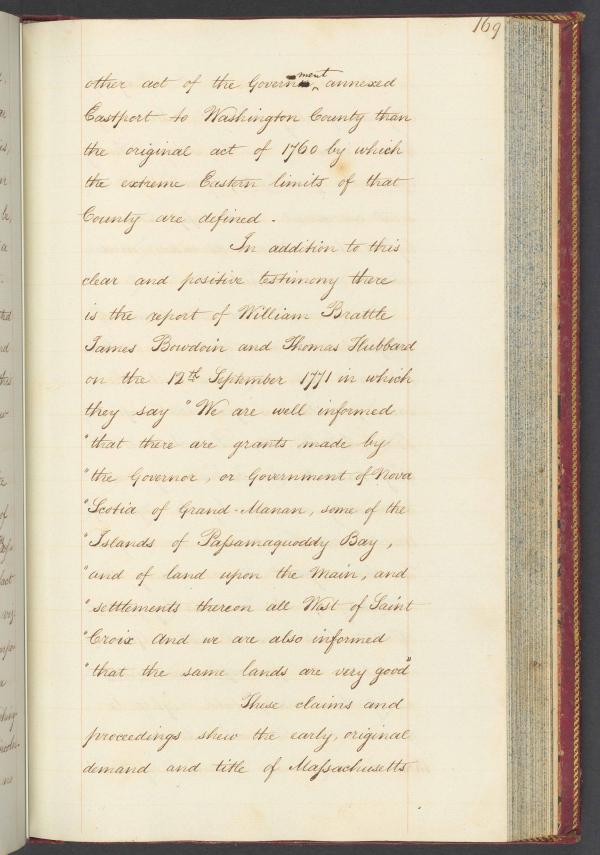 169
other act of the Government annexed
Eastport to Washington County than
the original act of 1760 by which
the extreme Eastern limits of that
County are defined.
In addition to this
clear and positive testimony there
is the report of William Brattle
James Bowdoin and Thomas Hubbard
on the 12th September 1771 in which
they say "We are well informed
"that there are grants made by
"the Governor, or Government of Nova
"Scotia of Grand-Manan, some of the
"Islands of Paſsamaquoddy Bay,
"and of land upon the Main, and
"settlements thereon all West of Saint
"Croix and we are also informed
"that the same lands are very good"
These claims and
proceedings shew the early, original
demand and title of Maſsachusetts